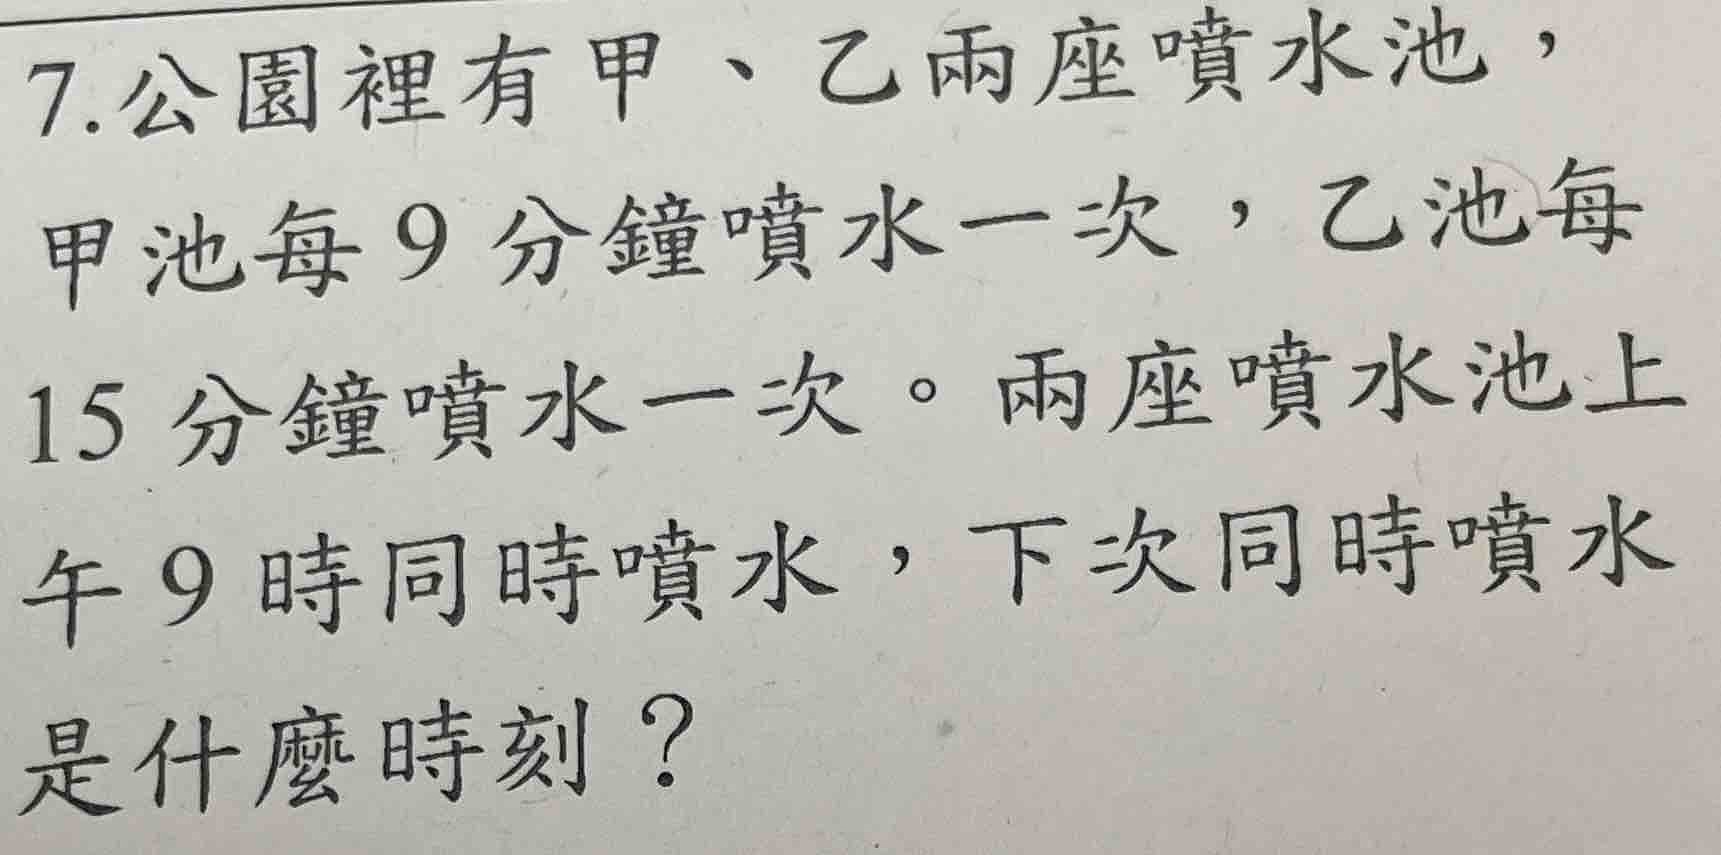 7.公園裡有甲、乙兩座噴水池，
甲池每9分鐘噴水一次，乙池每
15分鐘噴水一次。兩座噴水池上
午9時同時噴水，下次同時噴水
是什麼時刻？